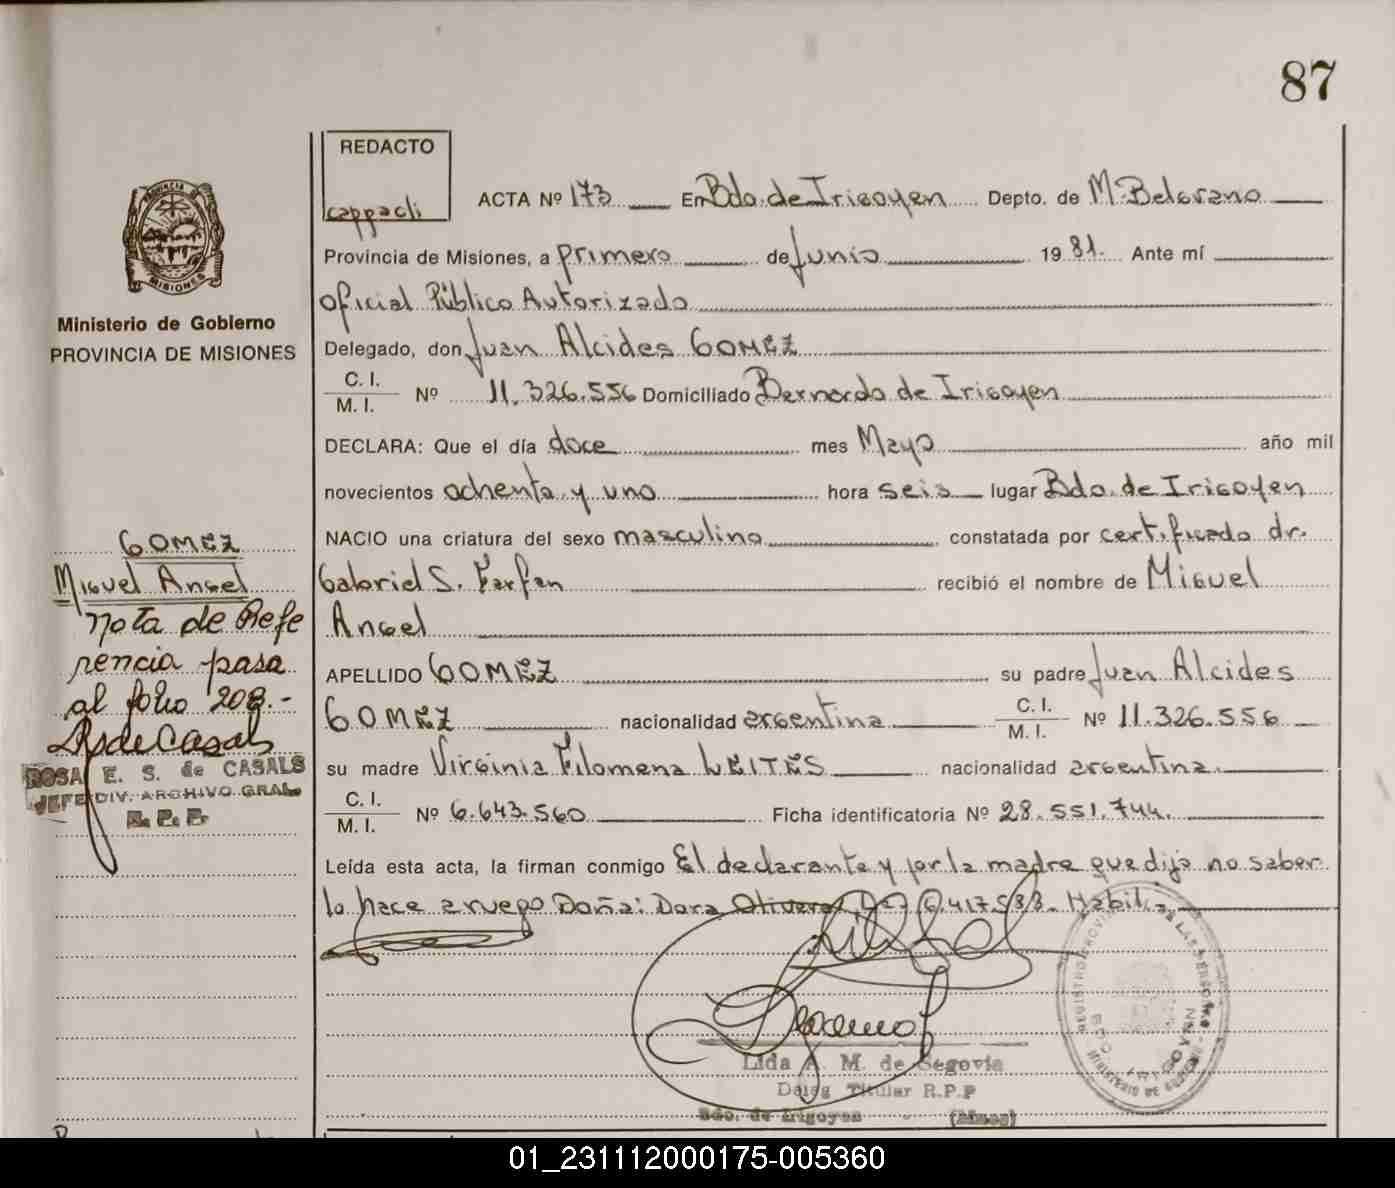 87
REDACTO
cappacli
ACTA Nº 173 En Bdo. de Irigoyen Depto. de M. Belgrano
Provincia de Misiones, a primero de Junio 19 81. Ante mí
Oficial Público Autorizado
Delegado, don Juan Alcides GOMEZ
C. I.
M. I. Nº 11.326.556 Domiciliado Bernardo de Irigoyen
DECLARA: Que el día doce mes Mayo año mil
novecientos ochenta y uno hora seis lugar Bdo. de Irigoyen
NACIO una criatura del sexo masculino constatada por certificado dr.
Gabriel S. Farfan recibió el nombre de Miguel
Angel
APELLIDO GOMEZ su padre Juan Alcides
GOMEZ nacionalidad argentina C. I. M. I. Nº 11.326.556
su madre Virginia Filomena LEITES nacionalidad argentina.
C. I.
M. I. Nº 6.643.560 Ficha identificatoria Nº 28.551.744.
Leída esta acta, la firman conmigo El declarante y por la madre que dijo no saber
lo hace a ruego Doña: Dora Olivera 6.417.588. Habil.
Lida A. M. de Segovia
Deleg Titular R.P.P
Bdo. de Irigoyen (Mnes)
PROVINCIA DE MISIONES
Ministerio de Gobierno
PROVINCIA DE MISIONES
GOMEZ
Miguel Angel
Nota de Refe
rencia pasa
al folio 208.-
RSdeCasals
ROSA E. S. de CASALS
JEFE DIV. ARCHIVO GRAL.
R. P. P.
BDO IRIGOYEN
01_231112000175-005360